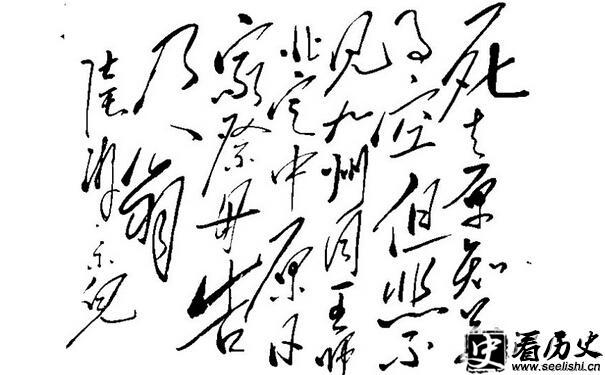 死去原知萬
事空但悲不
见九州同王师
北定中原日
家祭毋告
乃翁
陸游示兒
史看历史
www.seelishi.cn